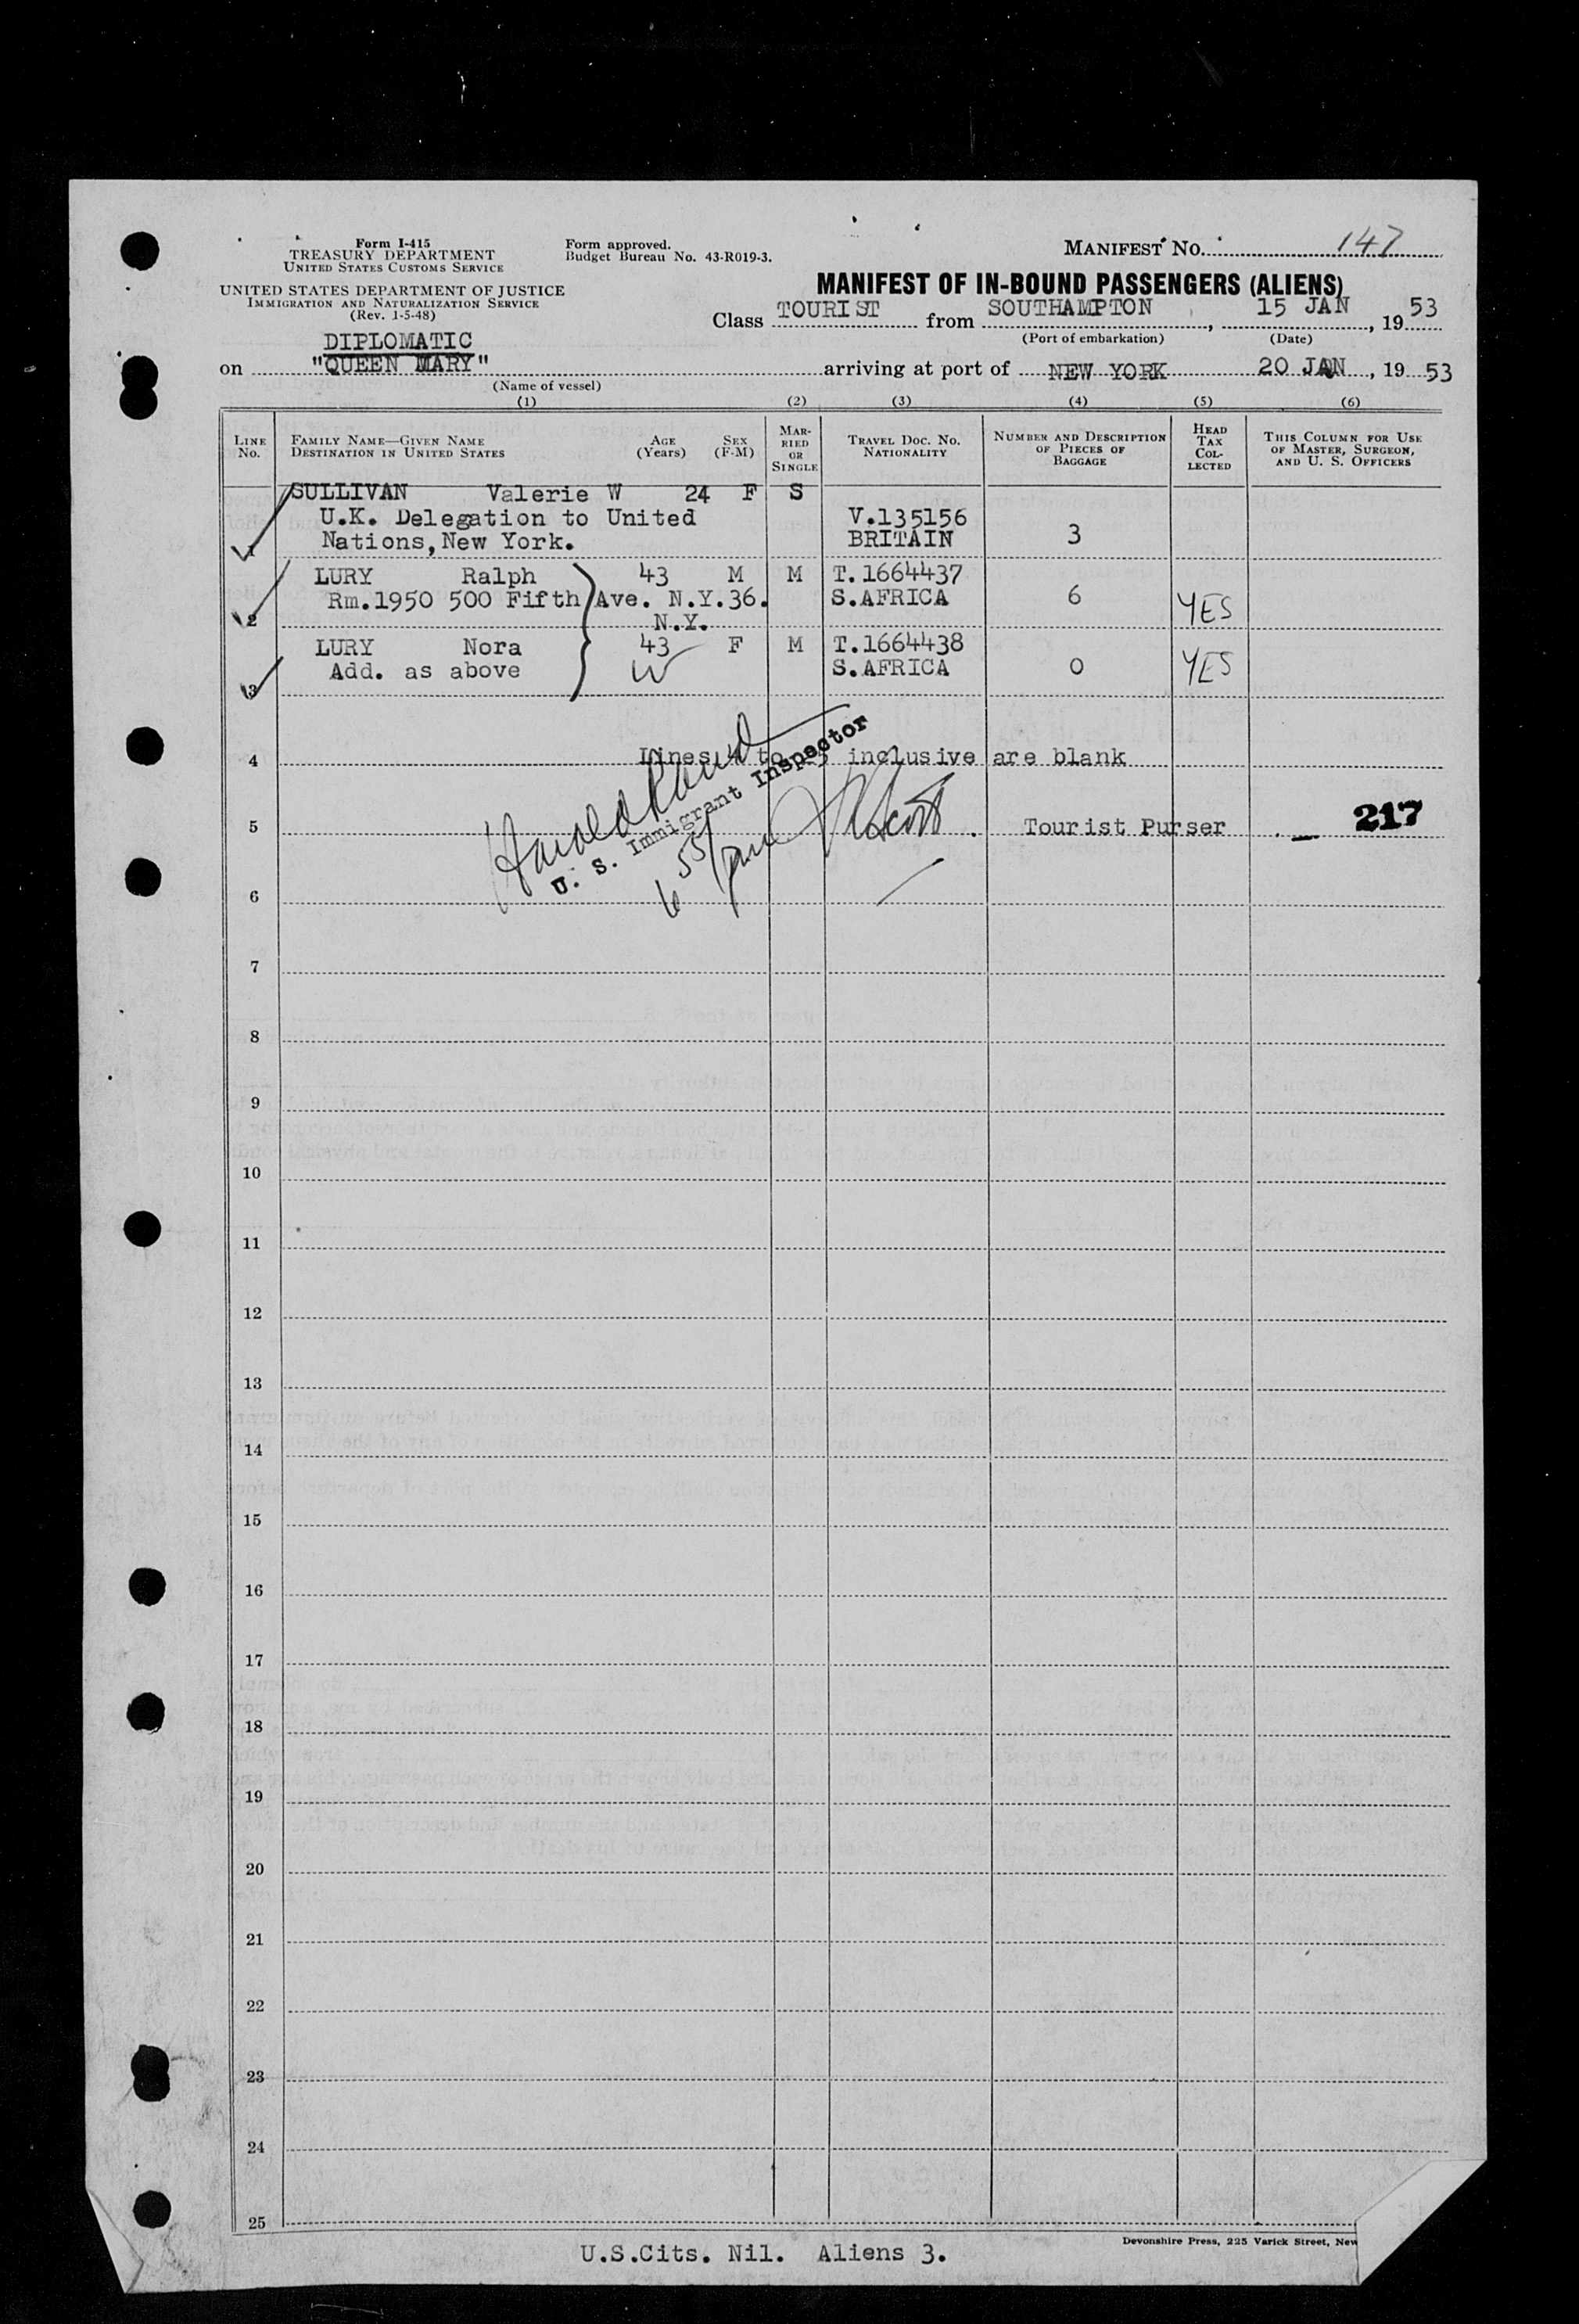 Form I-415
TREASURY DEPARTMENT
UNITED STATES CUSTOMS SERVICE
UNITED STATES DEPARTMENT OF JUSTICE
IMMIGRATION AND NATURALIZATION SERVICE
(Rev. 1-5-48)
Form approved.
Budget Bureau No. 43-R019-3.
MANIFEST NO. 147
MANIFEST OF IN-BOUND PASSENGERS (ALIENS)
Class TOURIST from SOUTHAMPTON, 15 JAN, 19 53
(Port of embarkation) (Date)
DIPLOMATIC
on "QUEEN MARY" arriving at port of NEW YORK 20 JAN, 19 53
(Name of vessel)
(1) (2) (3) (4) (5) (6)
LINE No.
FAMILY NAME—GIVEN NAME
DESTINATION IN UNITED STATES
AGE (Years)
SEX (F-M)
MARRIED OR SINGLE
TRAVEL DOC. NO. NATIONALITY
NUMBER AND DESCRIPTION OF PIECES OF BAGGAGE
HEAD TAX COLLECTED
THIS COLUMN FOR USE OF MASTER, SURGEON, AND U. S. OFFICERS
SULLIVAN Valerie W 24 F S
U.K. Delegation to United V.135156
1 Nations, New York. BRITAIN 3
LURY Ralph 43 M M T.1664437
Rm.1950 500 Fifth Ave. N.Y.36. S.AFRICA 6 YES
2 N.Y.
LURY Nora 43 F M T.1664438
Add. as above S.AFRICA 0 YES
3
4 Lines 4 to inclusive are blank
U. S. Immigrant Inspector
5 Tourist Purser 217
6
7
8
9
10
11
12
13
14
15
16
17
18
19
20
21
22
23
24
25
Devonshire Press, 225 Varick Street, New
U.S.Cits. Nil. Aliens 3.